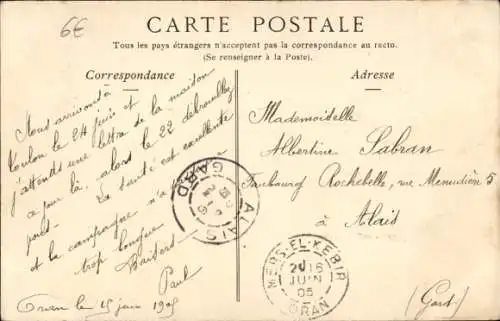 6€
CARTE POSTALE
Tous les pays étrangers n'acceptent pas la correspondance au recto.
(Se renseigner à la Poste).
Correspondance
Adresse
Nous arrivons à
Toulon le 24 juin et
j'attends une lettre de la maison
pour là, alors le 22
La santé est excellente
et la campagne n'a
trop longue
Baisers
Paul
Oran le 15 juin 1905
Mademoiselle
Albertine Sabran
Faubourg Rochebelle, rue 5
à Alais
(Gard)
ALAIS
GARD
MERS-EL-KEBIR
JUIN
05
ORAN